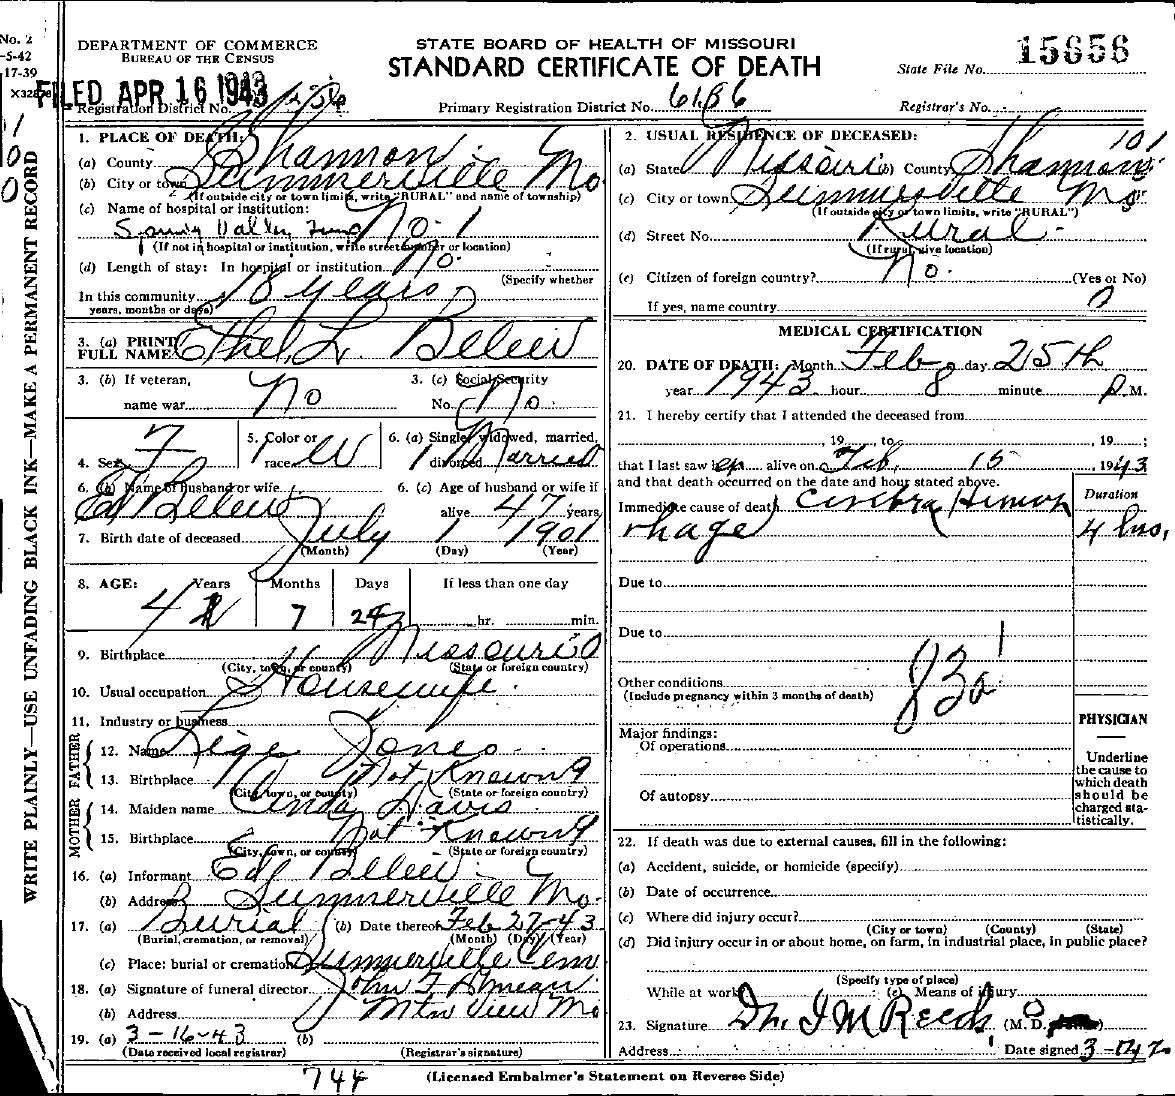 No. 2
-5-42
-17-39
DEPARTMENT OF COMMERCE
BUREAU OF THE CENSUS
STATE BOARD OF HEALTH OF MISSOURI
STANDARD CERTIFICATE OF DEATH
State File No. 15656
FILED APR 16 1943
Registration District No.
Primary Registration District No. 6186
Registrar's No.
WRITE PLAINLY—USE UNFADING BLACK INK—MAKE A PERMANENT RECORD
1. PLACE OF DEATH:
(a) County Shannon
(b) City or town Summerville Mo
(If outside city or town limits, write "RURAL" and name of township)
(c) Name of hospital or institution:
Spring Valley No. 1
(If not in hospital or institution, write street number or location)
(d) Length of stay: In hospital or institution No.
(Specify whether
In this community 18 years
years, months or days)
3. (a) PRINT
FULL NAME Ethel L. Belew
3. (b) If veteran,
name war No
3. (c) Social Security
No. No.
4. Sex F
5. Color or
race W
6. (a) Single, widowed, married,
divorced Married
6. (b) Name of husband or wife
Ed Belew
6. (c) Age of husband or wife if
alive 47 years
7. Birth date of deceased July 1 1901
(Month) (Day) (Year)
8. AGE: Years Months Days If less than one day
4 7 24
hr. min.
9. Birthplace Missouri
(City, town, or county) (State or foreign country)
10. Usual occupation Housewife
11. Industry or business
FATHER
12. Name Lige Jones
13. Birthplace Not Known 9
(City, town, or county) (State or foreign country)
MOTHER
14. Maiden name Cinda Davis
15. Birthplace Not Known 9
(City, town, or county) (State or foreign country)
16. (a) Informant Ed Belew
(b) Address Summerville Mo.
17. (a) Burial (b) Date thereof Feb 27-43
(Burial, cremation, or removal) (Month) (Day) (Year)
(c) Place: burial or cremation Summerville Cem
18. (a) Signature of funeral director John F
(b) Address Mtn View Mo
19. (a) 3-16-43 (b)
(Date received local registrar) (Registrar's signature)
2. USUAL RESIDENCE OF DECEASED:
101
(a) State Missouri (b) County Shannon
(c) City or town Summersville Mo
(If outside city or town limits, write "RURAL")
(d) Street No. Rural
(If rural, give location)
(e) Citizen of foreign country? No. (Yes or No)
If yes, name country 0
MEDICAL CERTIFICATION
20. DATE OF DEATH: Month Feb day 25th
year 1943 hour 8 minute P.M.
21. I hereby certify that I attended the deceased from
, 19 , to , 19 ;
that I last saw her alive on Feb. 15 1943
and that death occurred on the date and hour stated above.
Duration
Immediate cause of death Cerebra Hemor
rhage 4 hrs.
Due to
Due to
83a
Other conditions
(Include pregnancy within 3 months of death)
Major findings:
Of operations
Of autopsy
PHYSICIAN
Underline
the cause to
which death
should be
charged sta-
tistically.
22. If death was due to external causes, fill in the following:
(a) Accident, suicide, or homicide (specify)
(b) Date of occurrence
(c) Where did injury occur?
(City or town) (County) (State)
(d) Did injury occur in or about home, on farm, in industrial place, in public place?
(Specify type of place)
While at work (e) Means of injury
23. Signature Dr. J M Reed (M. D.
Address Date signed
744 (Licensed Embalmer's Statement on Reverse Side)